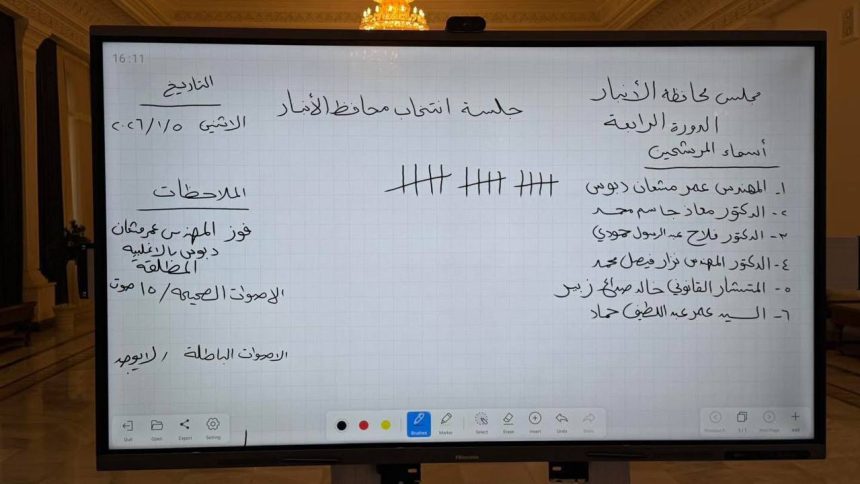 16:11
مجلس محافظة الأنبار
الدورة الرابعة
أسماء المرشحين
جلسة انتخاب محافظ الأنبار
التاريخ
الاثنين ٢٠٢٦/١/٥
١- المهندس عمر مشعان دبوس
٢- الدكتور معاذ جاسم محمد
٣- الدكتور فلاح عبد الرسول حمودي
٤- الدكتور المهندس نزار فيصل محمد
٥- المستشار القانوني خالد صداع زبير
٦- السيد عمر عبد اللطيف حماد
الملاحظات
فوز المهندس عمر مشعان
دبوس بالاغلبية
المطلقة
الاصوات الصحيحة / ١٥ صوت
الاصوات الباطلة / لا يوجد
Quit Open Export Setting
Brushes Marker Select Erase Insert Undo Redo
1/1 Next Page Add
Hisense